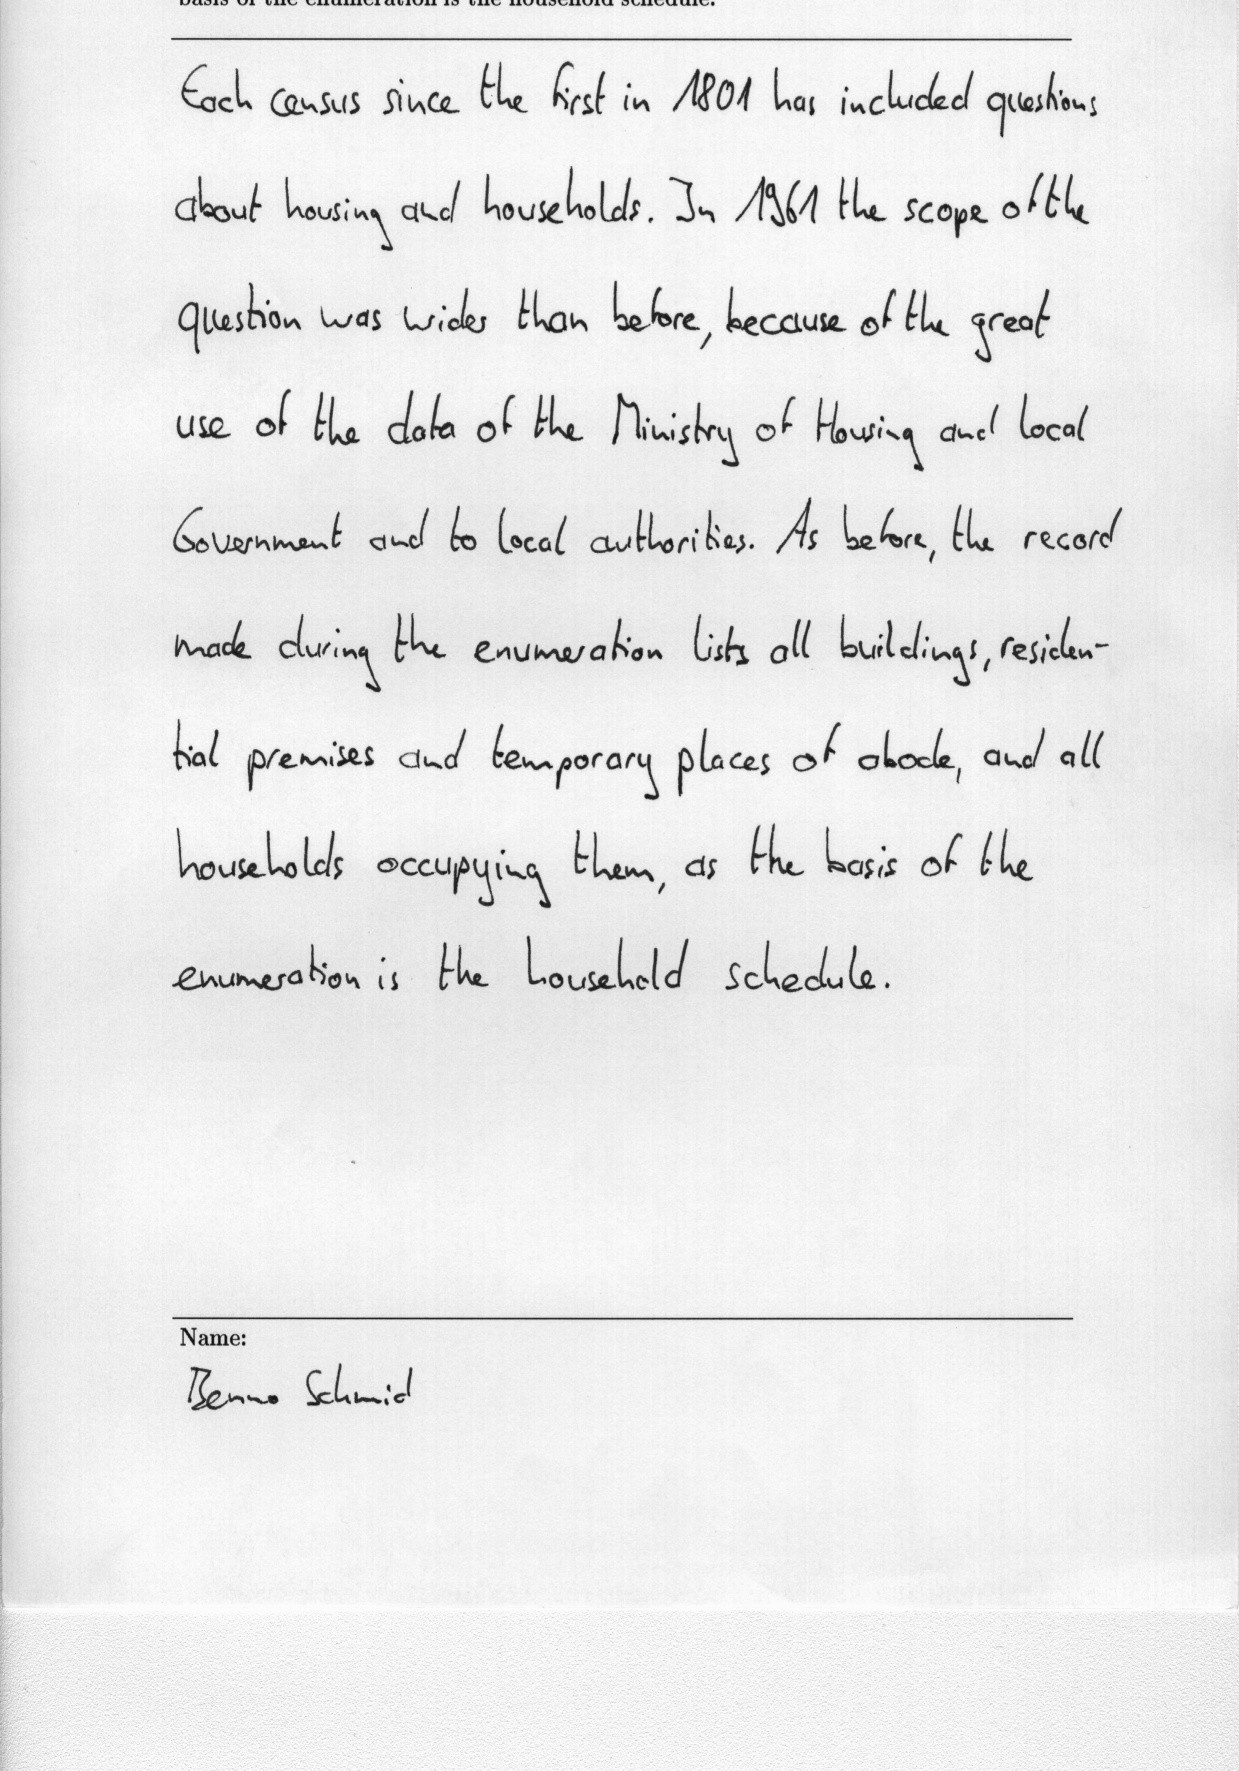 basis of the enumeration is the household schedule.
Each census since the first in 1801 has included questions
about housing and households. In 1961 the scope of the
question was wider than before, because of the great
use of the data of the Ministry of Housing and local
Government and to local authorities. As before, the record
made during the enumeration lists all buildings, residen-
tial premises and temporary places of abode, and all
households occupying them, as the basis of the
enumeration is the household schedule.
Name:
Benno Schmid